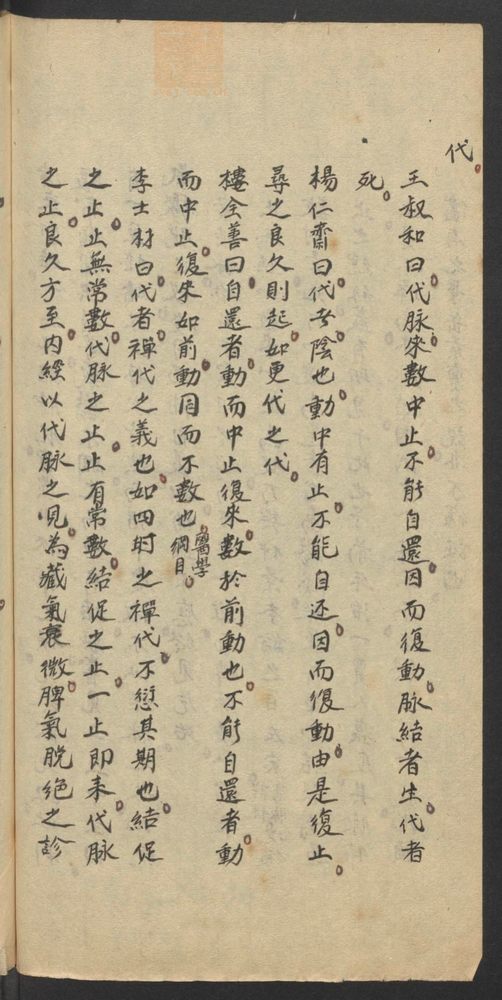 代
王叔和曰代脉來數中止不能自還因而復動脉結者生代者
死
楊仁齋曰代者陰也動中有止不能自还因而復動由是復止
尋之良久則起如更代之代
樓全善曰自還者動而中止復來數於前動也不能自還者動
而中止復來如前動同而不數也醫學綱目
李士材曰代者禪代之義也如四时之禪代不愆其期也結促
之止止無常數代脉之止止有常數結促之止一止即來代脉
之止良久方至內經以代脉之見為藏氣衰微脾氣脱絶之診